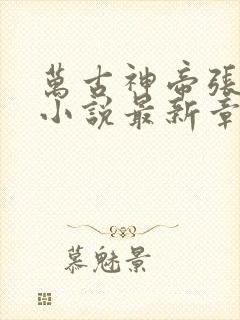 萬古神帝張
小說最新章
慕魅景